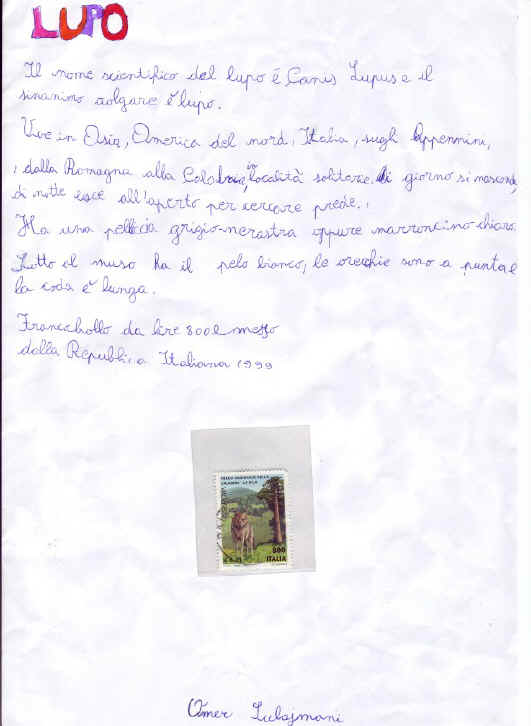 LUPO
Il nome scientifico del lupo é Canis Lupus e il
sinonimo volgare é lupo.
Vive in Asia, America del nord, Italia, sugli Appennini,
dalla Romagna alla Calabria, in località solitarie. Di giorno si nasconde,
di notte esce all'aperto per cercare prede.
Ha una pelliccia grigio-nerastra oppure marroncino-chiaro.
Sotto il muso ha il pelo bianco, le orecchie sono a punta e
la coda é lunga.
Francobollo da lire 800 emesso
dalla Repubblica Italiana 1999
800
ITALIA
Omer